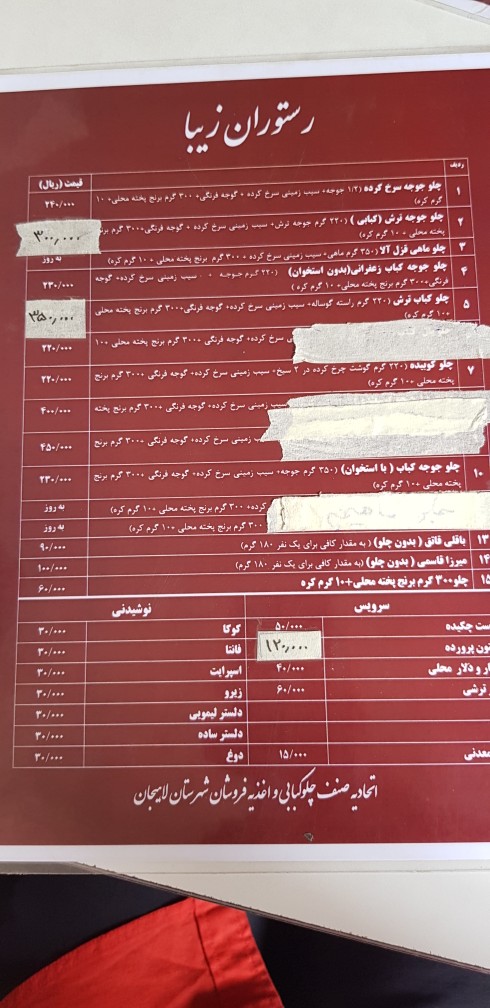 رستوران زیبا
ردیف
قیمت (ریال)
۱ چلو جوجه سرخ کرده (۱/۲ جوجه+ سیب زمینی سرخ کرده + گوجه فرنگی+ ۳۰۰ گرم برنج پخته محلی+ ۱۰
گرم کره) ۲۴۰/۰۰۰
۲ چلو جوجه ترش (کبابی) (۲۲۰ گرم جوجه ترش+ سیب زمینی سرخ کرده + گوجه فرنگی+۳۰۰ گرم
پخته محلی + ۱۰ گرم کره) ۳۰۰٫۰۰۰
۳ چلو ماهی قزل آلا (۳۵۰ گرم ماهی+ سیب زمینی سرخ کرده + ۳۰۰ گرم برنج پخته محلی + ۱۰ گرم کره) به روز
۴ چلو جوجه کباب زعفرانی(بدون استخوان) (۲۲۰ گرم جوجه سیب زمینی سرخ کرده + گوجه
فرنگی+۳۰۰ گرم برنج پخته محلی+ ۱۰ گرم کره) ۲۳۰/۰۰۰
۵ چلو کباب ترش (۲۲۰ گرم راسته گوساله+ سیب زمینی سرخ کرده + گوجه فرنگی+۳۰۰ گرم برنج پخته محلی
+۱۰ گرم کره) ۳۵۰٫۰۰۰
سرخ کرده+ گوجه فرنگی +۳۰۰ گرم برنج پخته محلی +۱۰ ۲۲۰/۰۰۰
۷ چلو کوبیده (۲۲۰ گرم گوشت چرخ کرده در ۲ سیخ+ سیب زمینی سرخ کرده+ گوجه فرنگی +۳۰۰ گرم برنج
پخته محلی +۱۰ گرم کره) ۲۲۰/۰۰۰
سیب زمینی سرخ کرده+ گوجه فرنگی +۳۰۰ گرم برنج پخته ۴۰۰/۰۰۰
زمینی سرخ کرده+ گوجه فرنگی +۳۰۰ گرم برنج ۴۵۰/۰۰۰
۱۰ چلو جوجه کباب ( با استخوان) (۳۵۰ گرم جوجه+ سیب زمینی سرخ کرده+ گوجه فرنگی +۳۰۰ گرم برنج
پخته محلی +۱۰ گرم کره) ۲۳۰/۰۰۰
کرده+ ۳۰۰ گرم برنج پخته محلی +۱۰ گرم کره) به روز
۳۰۰ گرم برنج پخته محلی +۱۰ گرم کره) به روز
۱۳ باقلی قاتق ( بدون چلو) ( به مقدار کافی برای یک نفر ۱۸۰ گرم) ۹۰/۰۰۰
۱۴ میرزا قاسمی ( بدون چلو) (به مقدار کافی برای یک نفر ۱۸۰ گرم) ۱۰۰/۰۰۰
۱۵ چلو۳۰۰ گرم برنج پخته محلی+۱۰ گرم کره ۶۰/۰۰۰
سرویس نوشیدنی
چکیده ۵۰/۰۰۰ کوکا ۳۰/۰۰۰
پرورده ۱۲۰٫۰۰۰ فانتا ۳۰/۰۰۰
و دلار محلی ۴۰/۰۰۰ اسپرایت ۳۰/۰۰۰
ترشی ۶۰/۰۰۰ زیرو ۳۰/۰۰۰
دلستر لیمویی ۳۰/۰۰۰
دلستر ساده ۳۰/۰۰۰
معدنی ۱۵/۰۰۰ دوغ ۳۰/۰۰۰
اتحادیه صنف چلوکبابی و اغذیه فروشان شهرستان لاهیجان